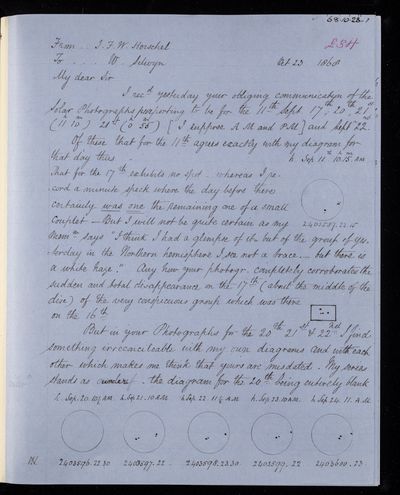 68.10.23.1
From .. J. F. W. Herschel
L.S.H
To . . . W. Selwyn Oct 23 1868
My dear Sir
I recd yesterday your obliging communication of the
Solar Photographs purporting to be for the 11th Sept 17th, 20th, 21st
(11h 10m) 21st (0h 35m) [I suppose AM and PM] and Sept 22nd.
Of these that for the 11th agrees exactly with my diagram for
that day thus h. Sep. 11. 10h.15m AM
That for the 17th exhibits no spot - whereas I re-
cord a minute speck where the day before there
certainly was one the remaining one of a small
Couplet - But I will not be quite certain as my
Memm says "I think I had a glimpse of it. but of the group of yes-
terday in the Northern hemisphere I see not a trace - but there is
a white haze." Any how your photogr. completely corroborates the
sudden and total disappearance on the 17th (about the middle of the
disc) of the very conspicuous group which was there
on the 16th
But in your Photographs for the 20th 21st & 22nd I find
something irreconcileable with my own diagrams and with each
other which makes me think that yours are misdated. My series
stands as under . the diagram for the 20th being entirely blank
h. Sep. 20. 10½ AM. h. Sep 21. 10 A.M. h. Sep 22 11½ A.M. h. Sep. 23. 10 A.M. h. Sep 24. 11. A.M.
2403596.22.30 2403597.22 2403598.23.30 2403599.22 2403600.23